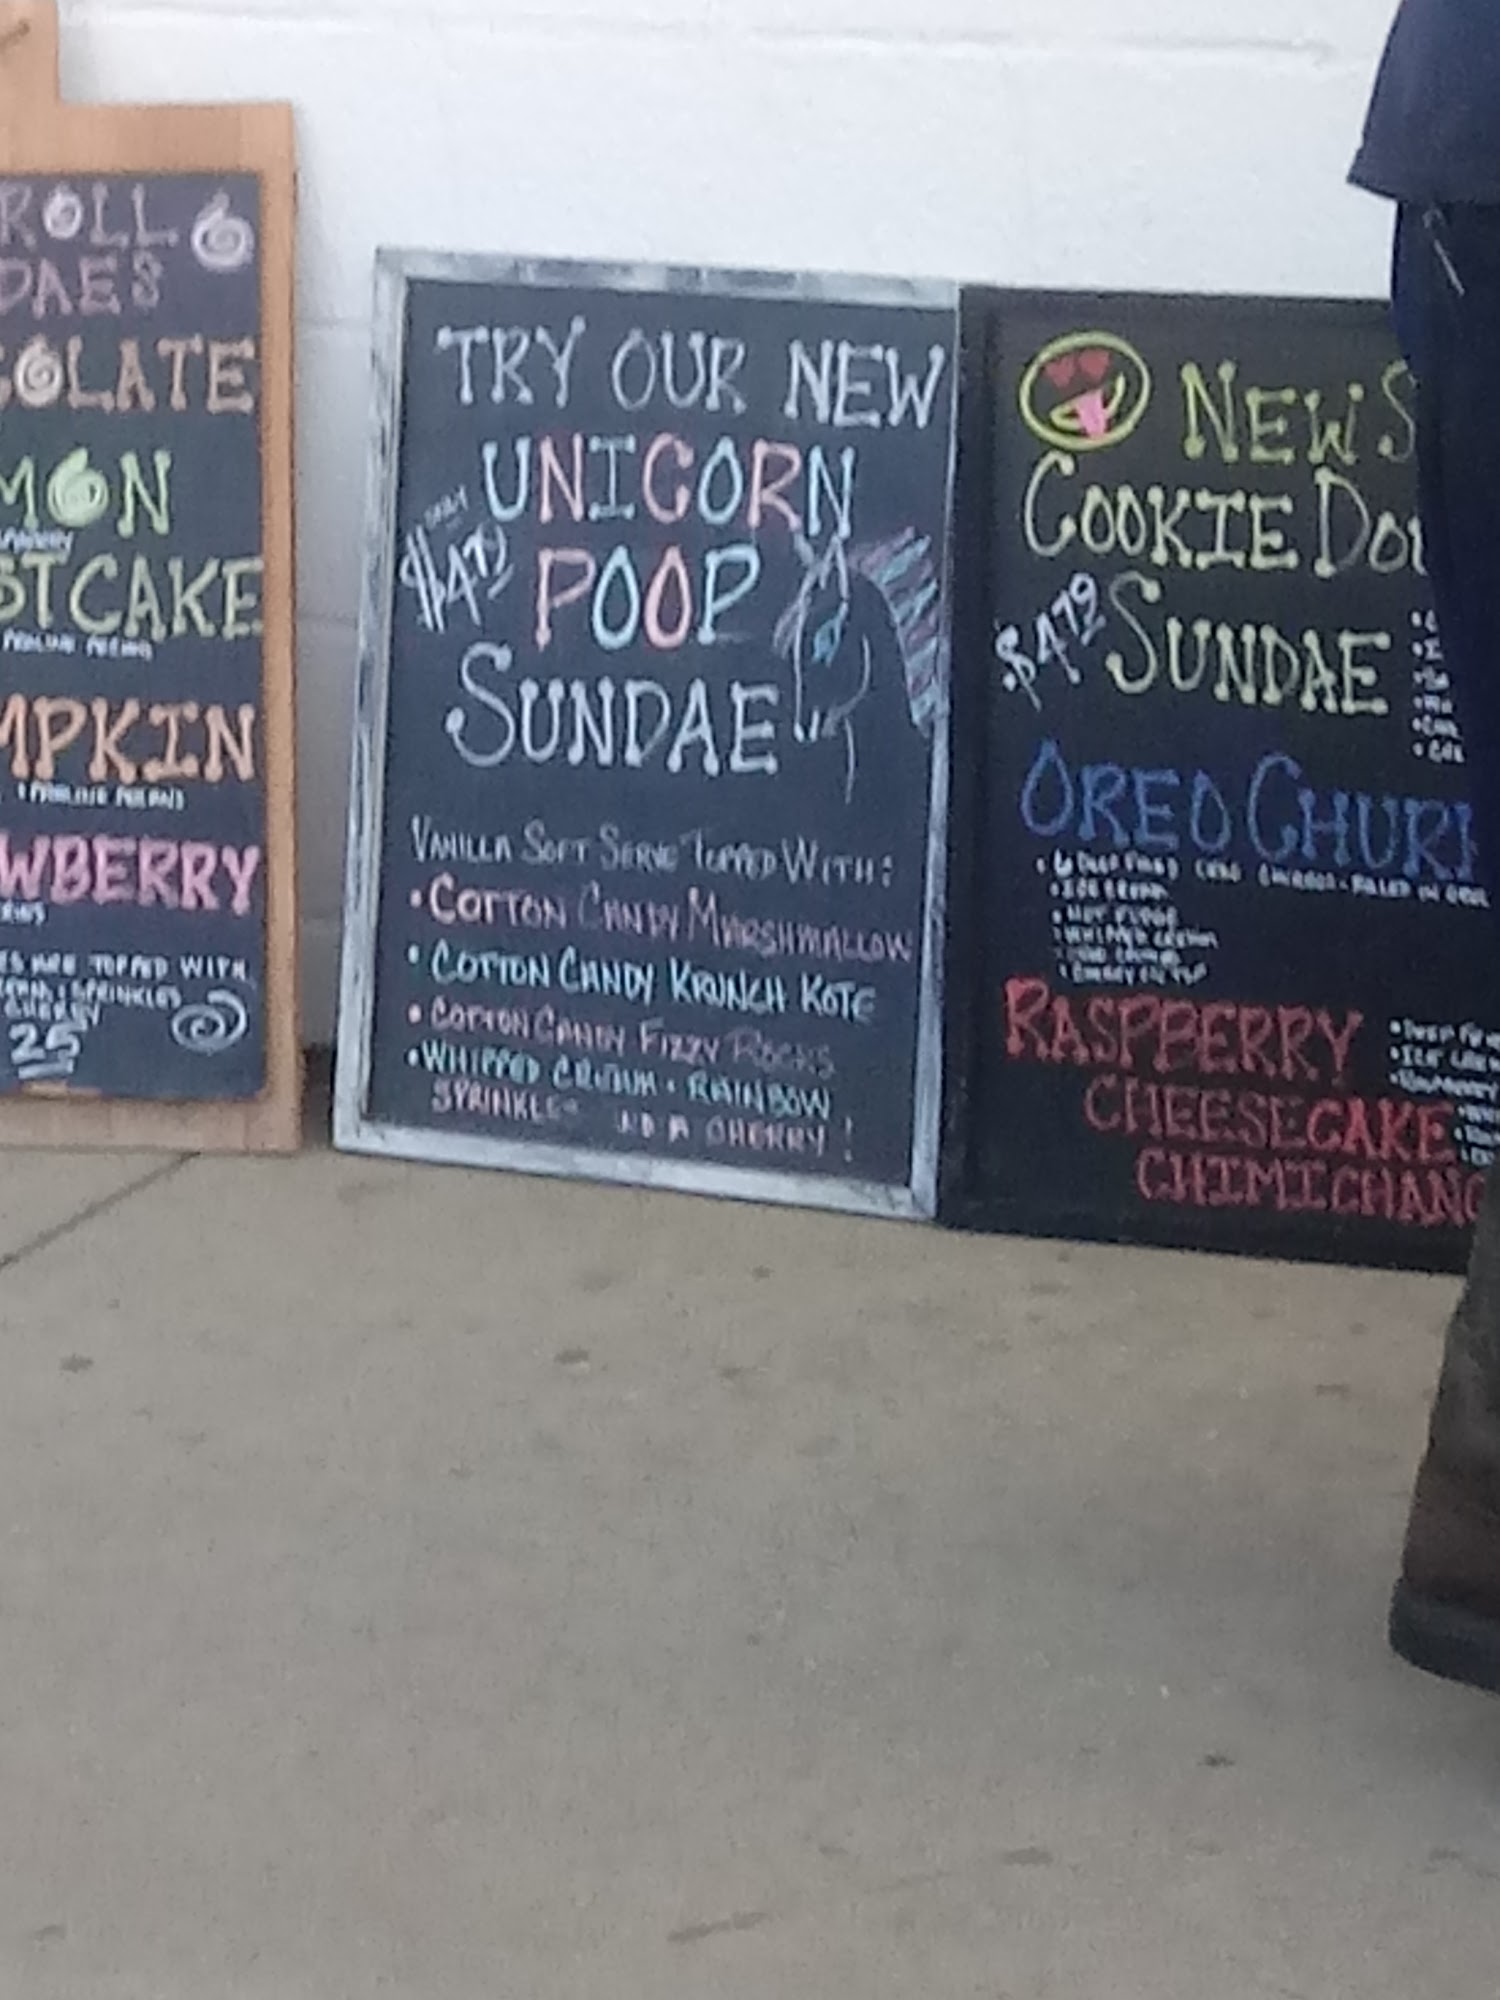 ROLL
DAES
OLATE
MON
STCAKE
PRALINE PECANS
MPKIN
PRALINE PECANS
WBERRY
ES ARE TOPPED WITH
SPRINKLES
CHERRY
25
TRY OUR NEW
UNICORN
ONLY
$4.79
POOP
SUNDAE
VANILLA SOFT SERVE TOPPED WITH:
• COTTON CANDY MARSHMALLOW
• COTTON CANDY KRUNCH KOTE
• COTTON CANDY FIZZY ROCKS
• WHIPPED CREAM • RAINBOW
SPRINKLES AND A CHERRY!
NEW S
COOKIE DOU
$4.79
SUNDAE
OREO CHUR
• 6 DEEP FRIED OREO CHURROS - ROLLED IN
• ICE CREAM
• HOT FUDGE
• WHIPPED CREAM
• CHERRY ON TOP
RASPBERRY
CHEESECAKE
CHIMICHANG